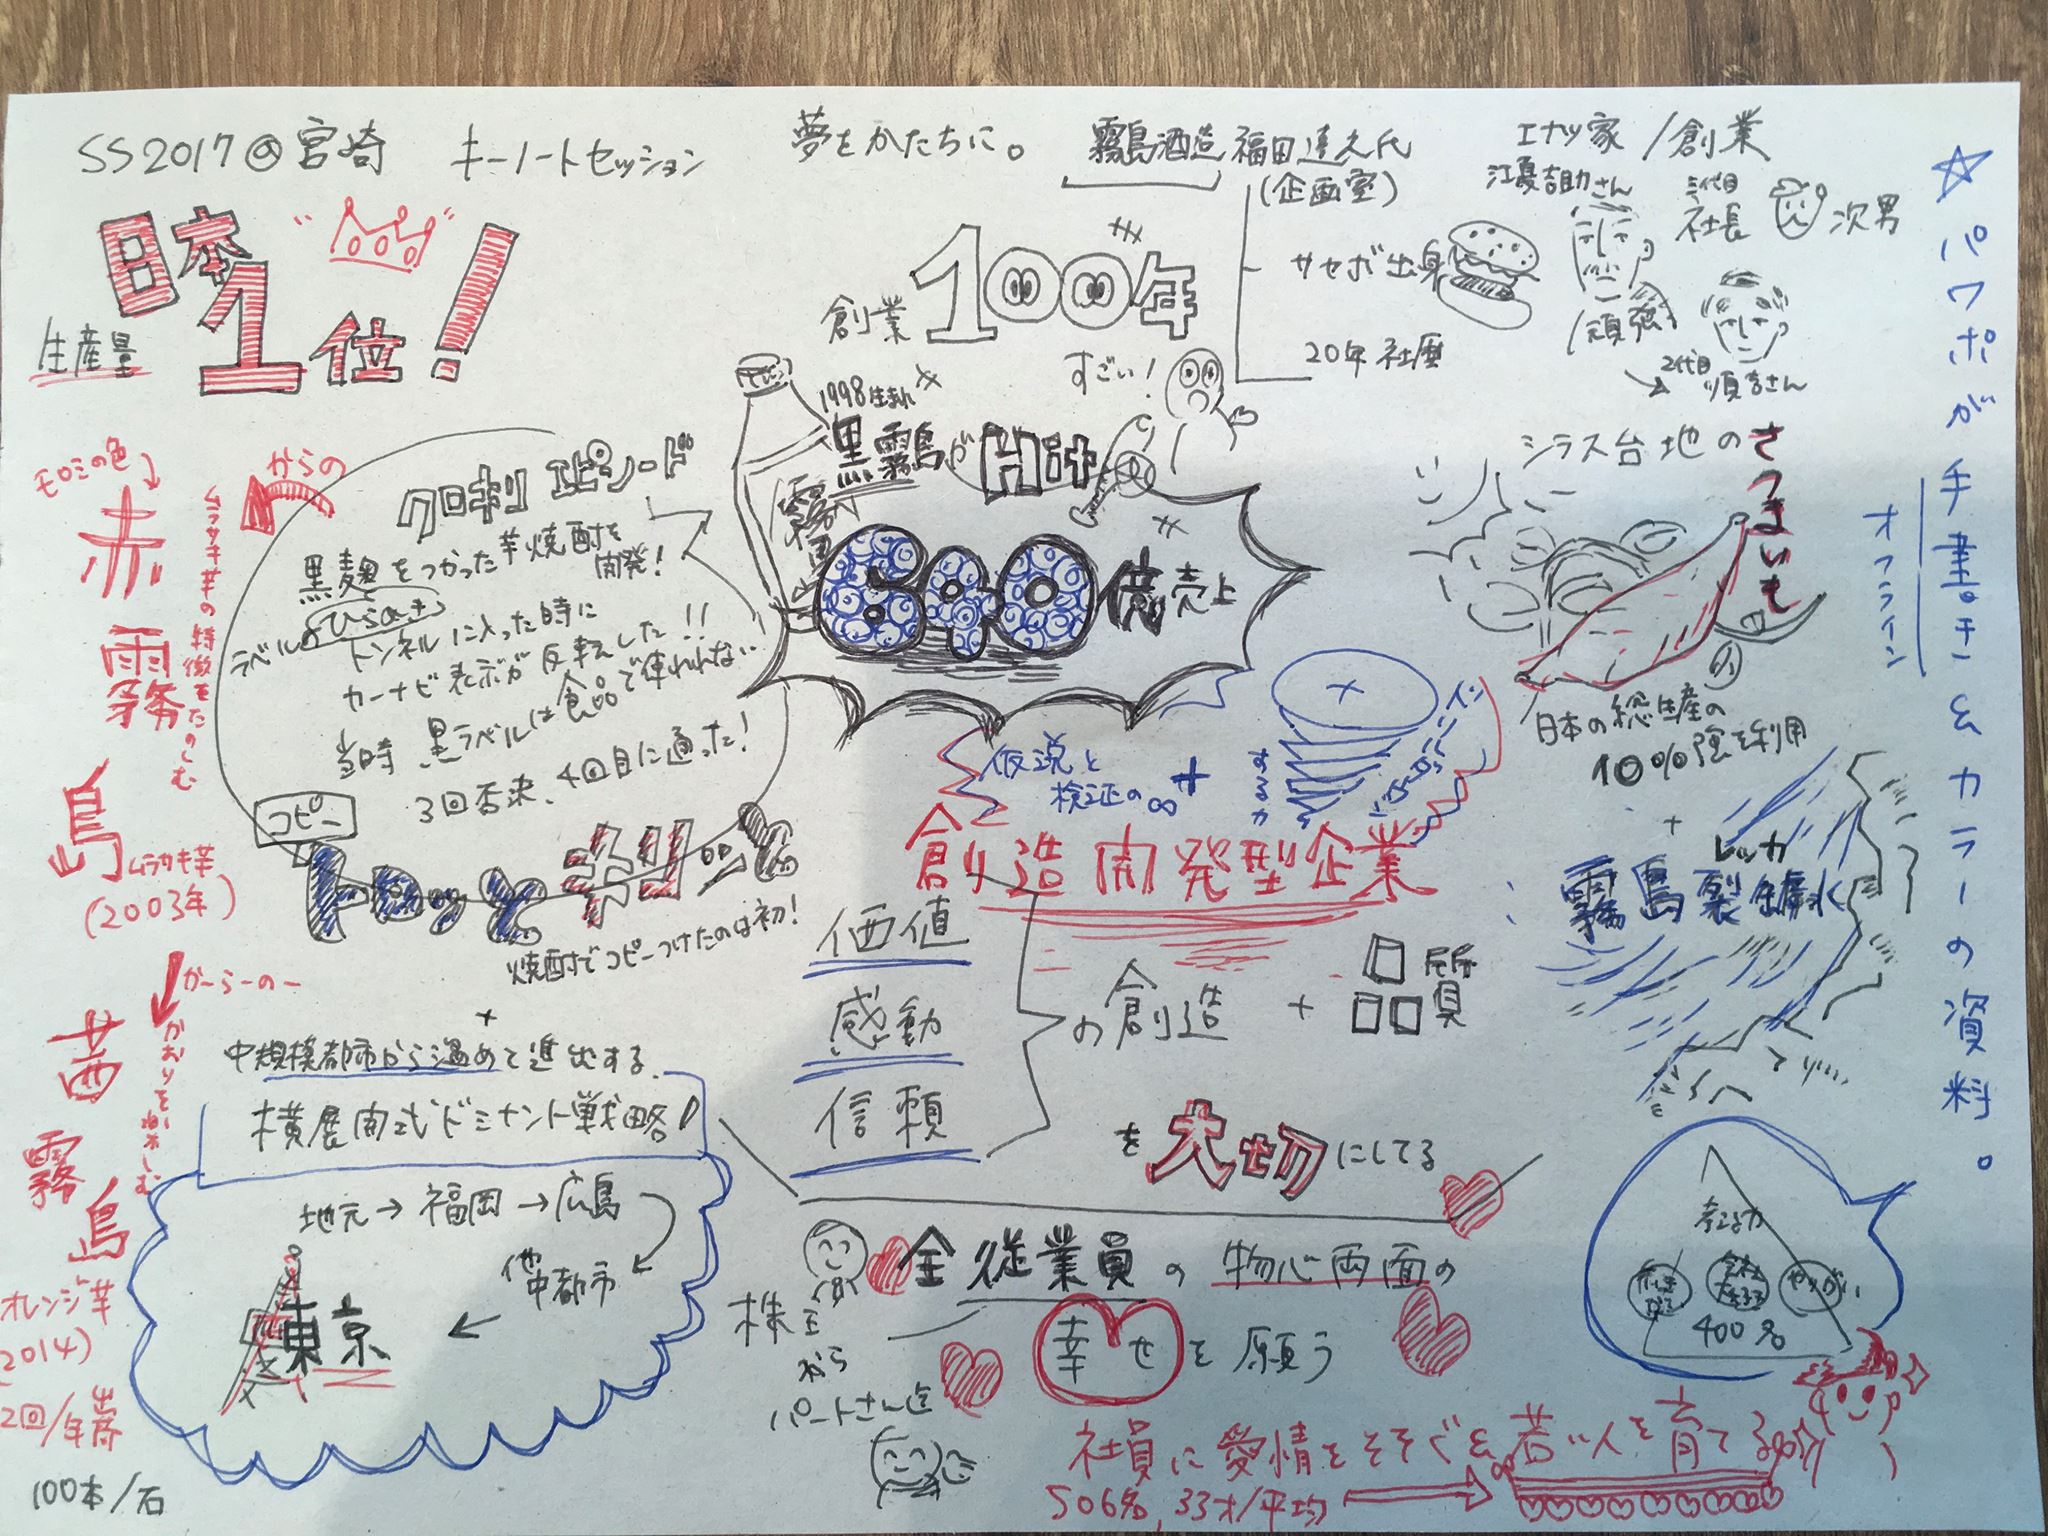 SS2017@宮崎 キーノートセッション
夢をかたちに。 霧島酒造 福田達之氏
(企画室)
サセボ出身
20年社歴
エナツ家/創業
江夏吉助さん
頑強
三代目
社長
次男
2代目
順吉さん
☆パワポが手書き&カラーの資料。
オフライン
生産量
日本
1位!
創業100年
すごい!
1998生まれ
黒霧島がHit
霧島
640億売上
シラス台地のさつまいも
日本の総生産の
10%強を利用
+
レッカ
霧島裂罅水
クロキリ エピソード
黒麹をつかった芋焼酎を
開発!
ラベルのひらめき
トンネルに入った時に
カーナビ表示が反転した!!
当時 黒ラベルは食品で使われない
3回否決、4回目に通った!
コピー
トロッとキリッと
焼酎でコピーつけたのは初!
からの
モロミの色
赤霧島
ムラサキ芋の特徴をたのしむ
ムラサキ芋
(2003年)
かーらーのー
茜霧島
かおりを楽しむ
オレンジ芋
2014)
2回/年出荷
100本/石
+
中規模都市から温めて進出する
横展開式ドミナント戦略!
地元→福岡→広島
他中都市
東京
仮説と
検証の∞
する力
創造開発型企業
価値
感動
信頼
の創造 + 品質
を大切にしてる
全従業員の物心両面の
幸せを願う
株主
から
パートさん迄
400名
社員に愛情をそそぐ&若い人を育てる
506名,33才/平均